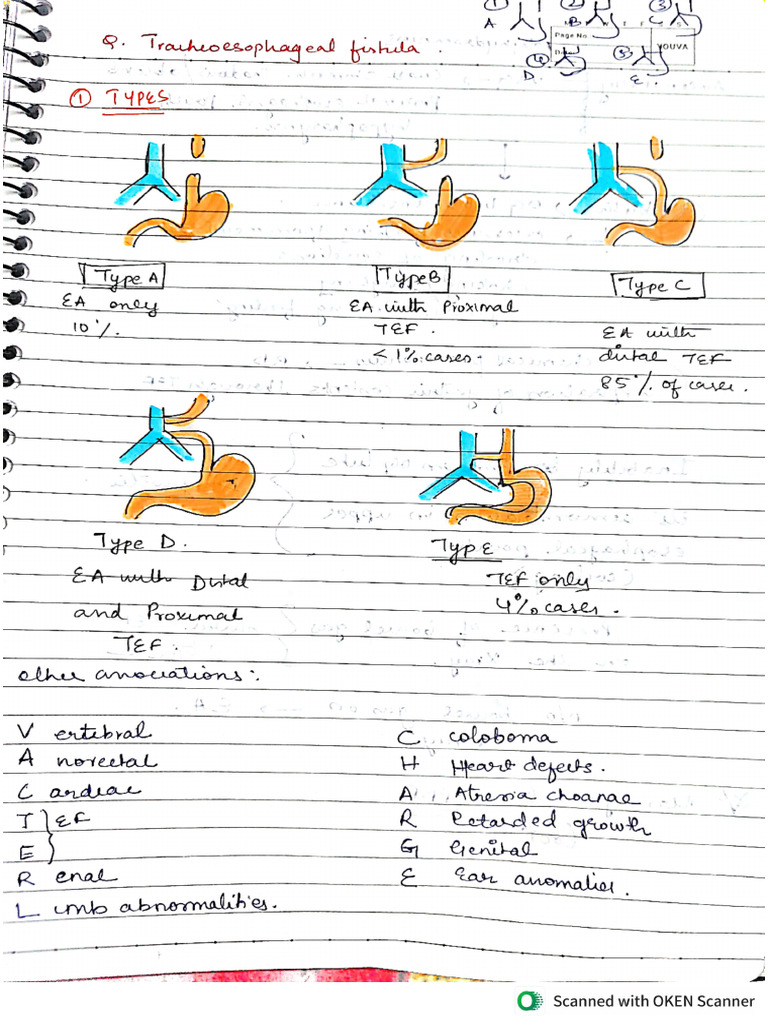 ① ② ③
A B C
Page No.
YOUVA
④ ⑤
D E
Q. Tracheoesophageal fistula.
① TYPES
Type A Type B Type C
EA only EA with Proximal
10%. TEF. EA with
<1% cases. distal TEF
85% of cases.
Type D. Type E
EA with Distal TEF only
and Proximal 4% cases.
TEF.
other associations:
V ertebral C coloboma
A norectal H Heart defects.
C ardiac A Atresia choanae
T } EF R Retarded growth
E } G Genital
R enal E Ear anomalies.
L imb abnormalities.
Scanned with OKEN Scanner